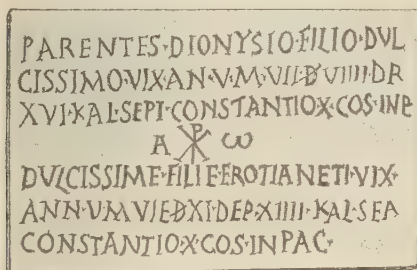 PARENTES·DIONYSIO·FILIO·DVL
CISSIMO·VIX·AN·V·M·VII·D·VIIII·DR
XVI·KAL·SEPI·CONSTANTIO·X·COS·INP
A ☧ ω
DVLCISSIME·FILIE·EROTIANETI·VIX·
ANN·VM VIE·D·XI·DEP·XIIII·KAL·SEA
CONSTANTIO·X·COS·IN PAC·